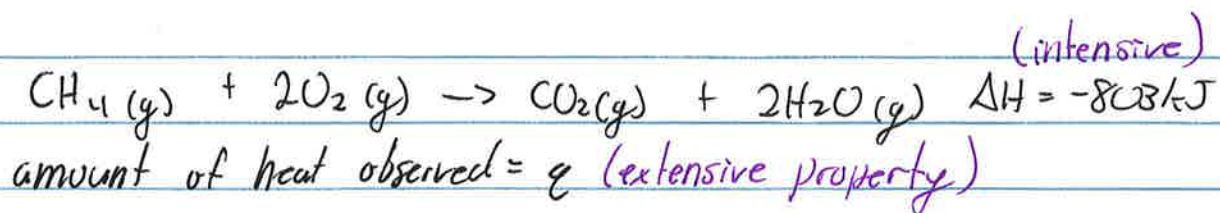 (intensive)
CH₄(g) + 2O₂(g) -> CO₂(g) + 2H₂O(g) ΔH = -803kJ
amount of heat observed = q (extensive property)